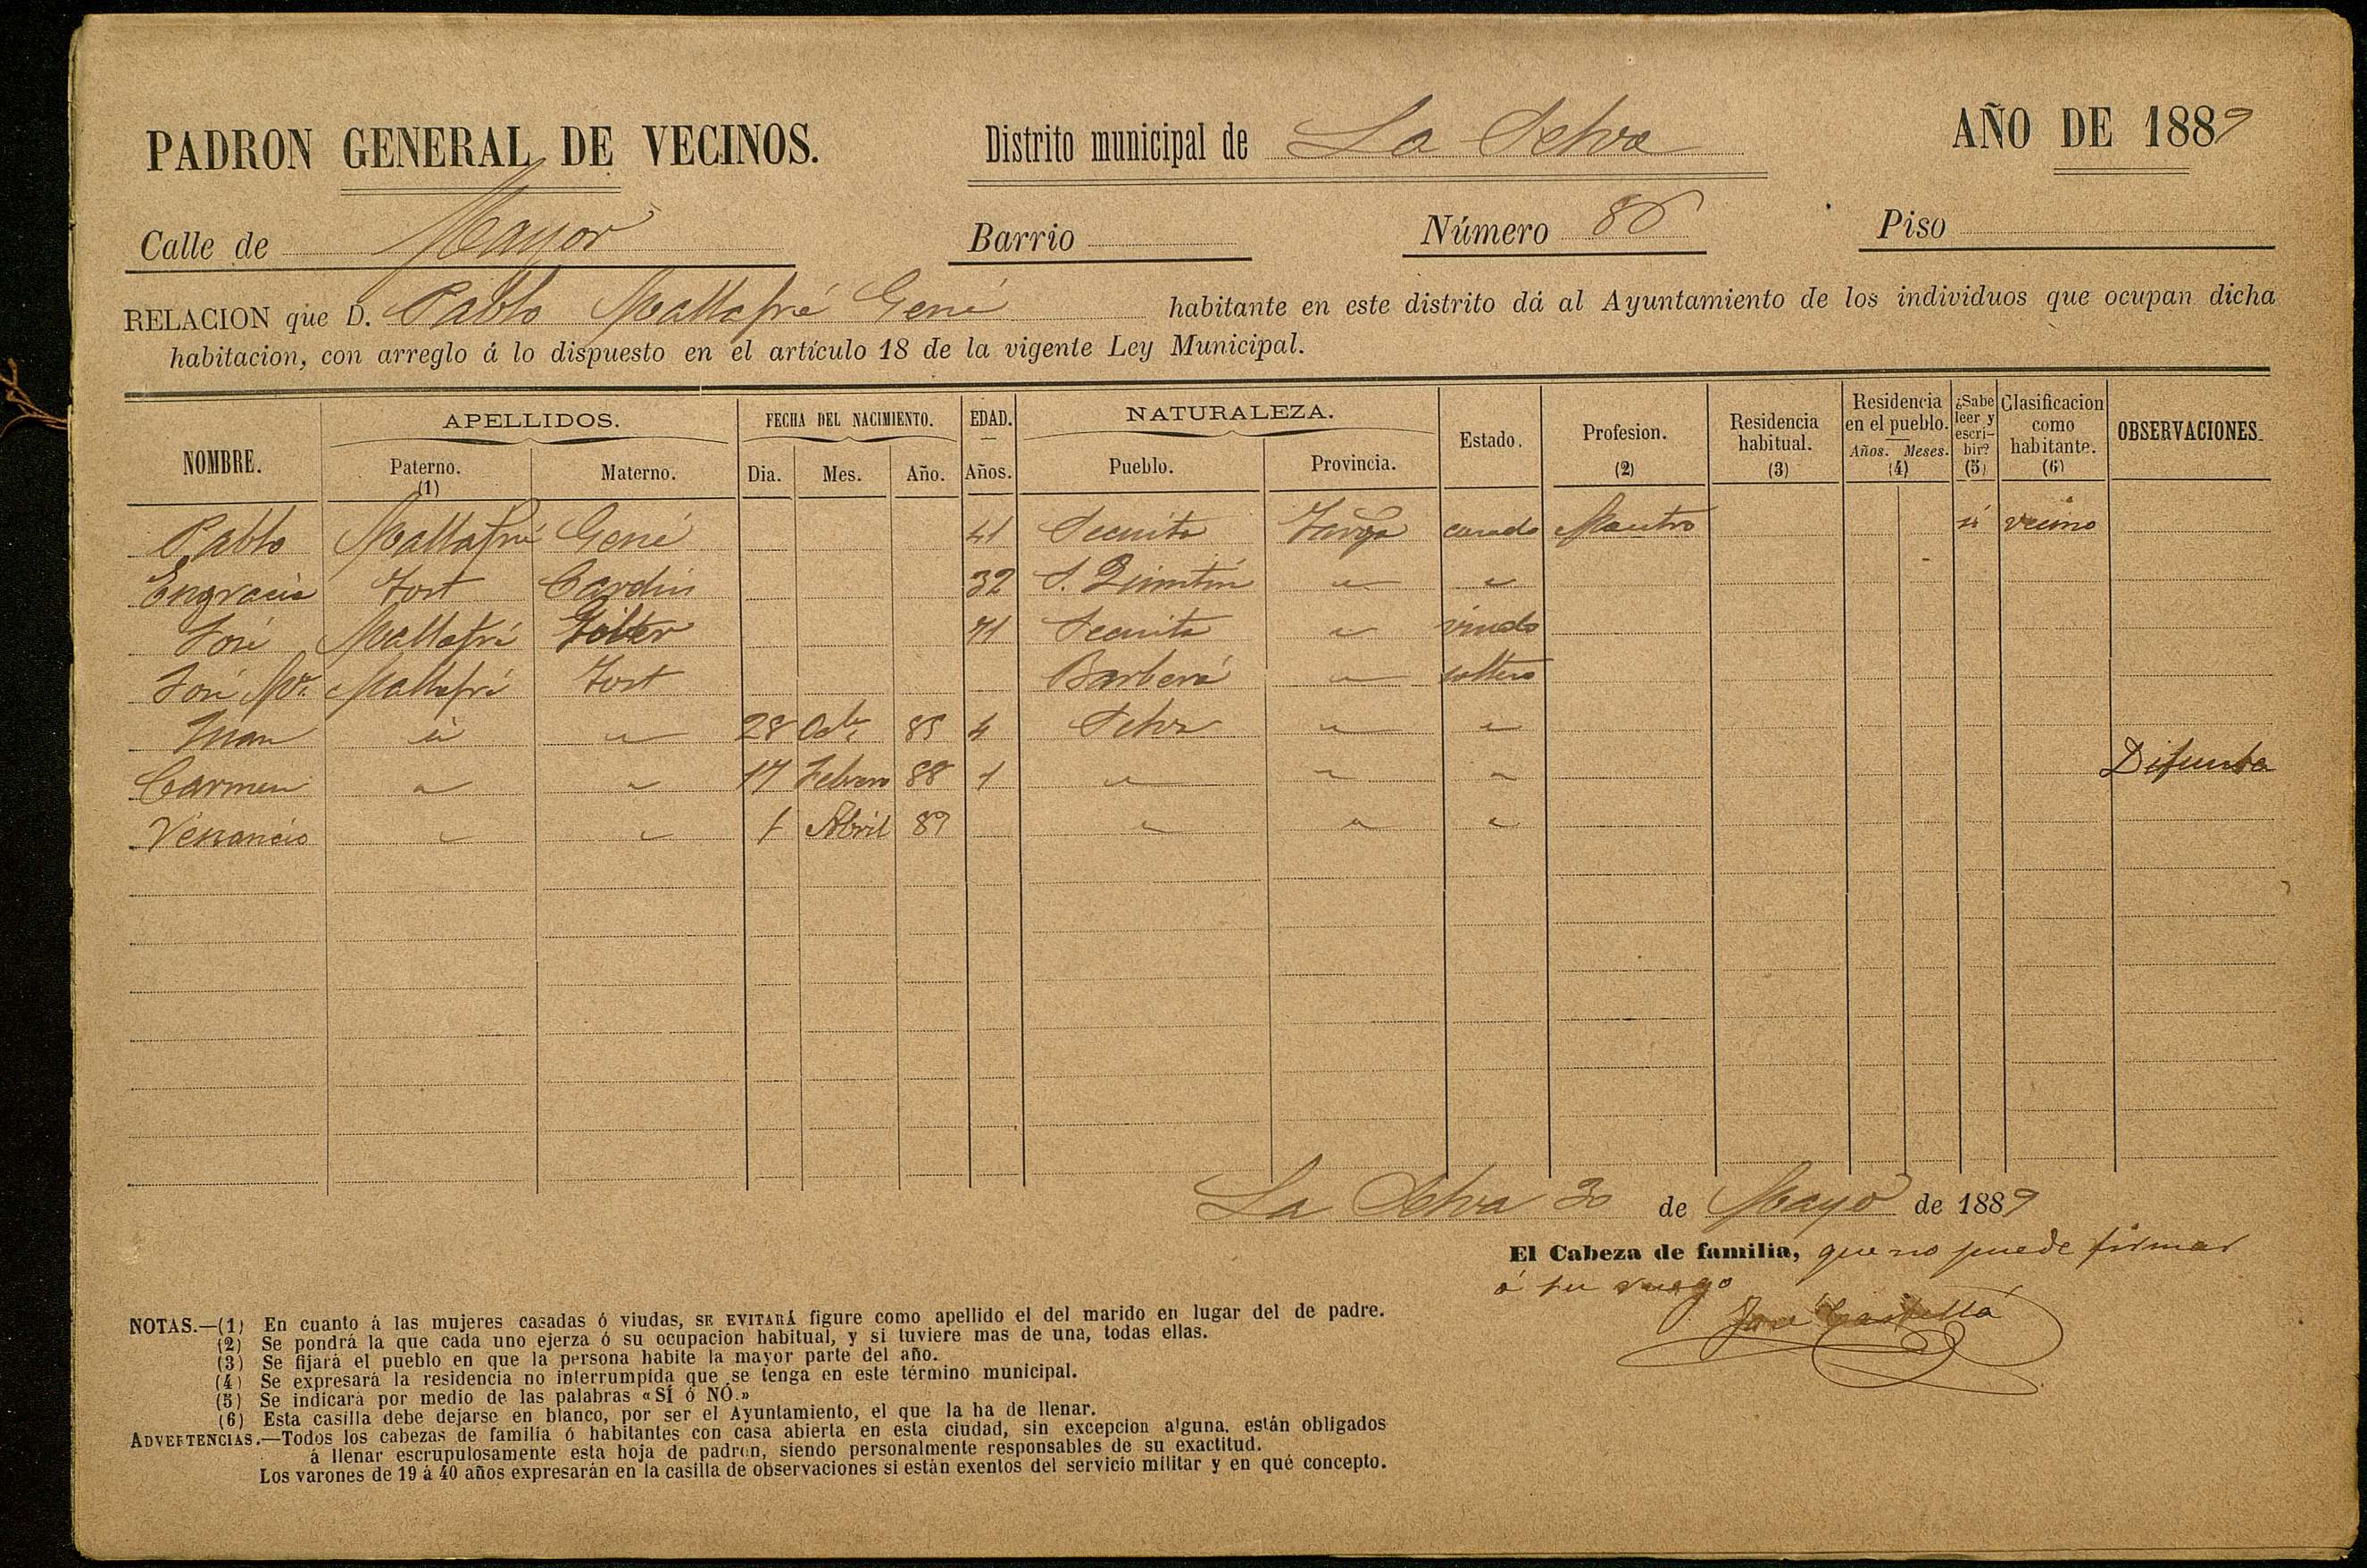 PADRON GENERAL DE VECINOS. Distrito municipal de La Selva AÑO DE 1889
Calle de Mayor Barrio Número 86 Piso
RELACION que D. Pablo Mallafré Gené habitante en este distrito dá al Ayuntamiento de los individuos que ocupan dicha
habitacion, con arreglo á lo dispuesto en el artículo 18 de la vigente Ley Municipal.
NOMBRE. APELLIDOS. Paterno. (1) Materno. FECHA DEL NACIMIENTO. Dia. Mes. Año. EDAD. Años. NATURALEZA. Pueblo. Provincia. Estado. Profesion. (2) Residencia habitual. (3) Residencia en el pueblo. Años. Meses. (4) ¿Sabe leer y escribir? (5) Clasificacion como habitante. (6) OBSERVACIONES.
Pablo Mallafré Gené 41 Secuita Tarrga casado Maestro si vecino
Engracia Fort 32 S. Quintin " "
José Mallafré 71 Secuita " viudo
José Mª Mallafré Fort Barberá " soltero
Juan id " 28 Oct. 85 4 Selva " "
Carmen " " 17 Febrero 88 1 " " " Difunta
Venancio " " 1 Abril 89 " " "
La Selva 30 de Mayo de 1889
El Cabeza de familia, que no puede firmar
á su ruego
José Castellá
NOTAS.—(1) En cuanto á las mujeres casadas ó viudas, SE EVITARÁ figure como apellido el del marido en lugar del de padre.
(2) Se pondrá la que cada uno ejerza ó su ocupacion habitual, y si tuviere mas de una, todas ellas.
(3) Se fijará el pueblo en que la persona habite la mayor parte del año.
(4) Se expresará la residencia no interrumpida que se tenga en este término municipal.
(5) Se indicará por medio de las palabras «SÍ ó NÓ.»
(6) Esta casilla debe dejarse en blanco, por ser el Ayuntamiento, el que la ha de llenar.
ADVERTENCIAS.—Todos los cabezas de familia ó habitantes con casa abierta en esta ciudad, sin excepcion alguna, están obligados
á llenar escrupulosamente esta hoja de padron, siendo personalmente responsables de su exactitud.
Los varones de 19 á 40 años expresarán en la casilla de observaciones si están exentos del servicio militar y en qué concepto.